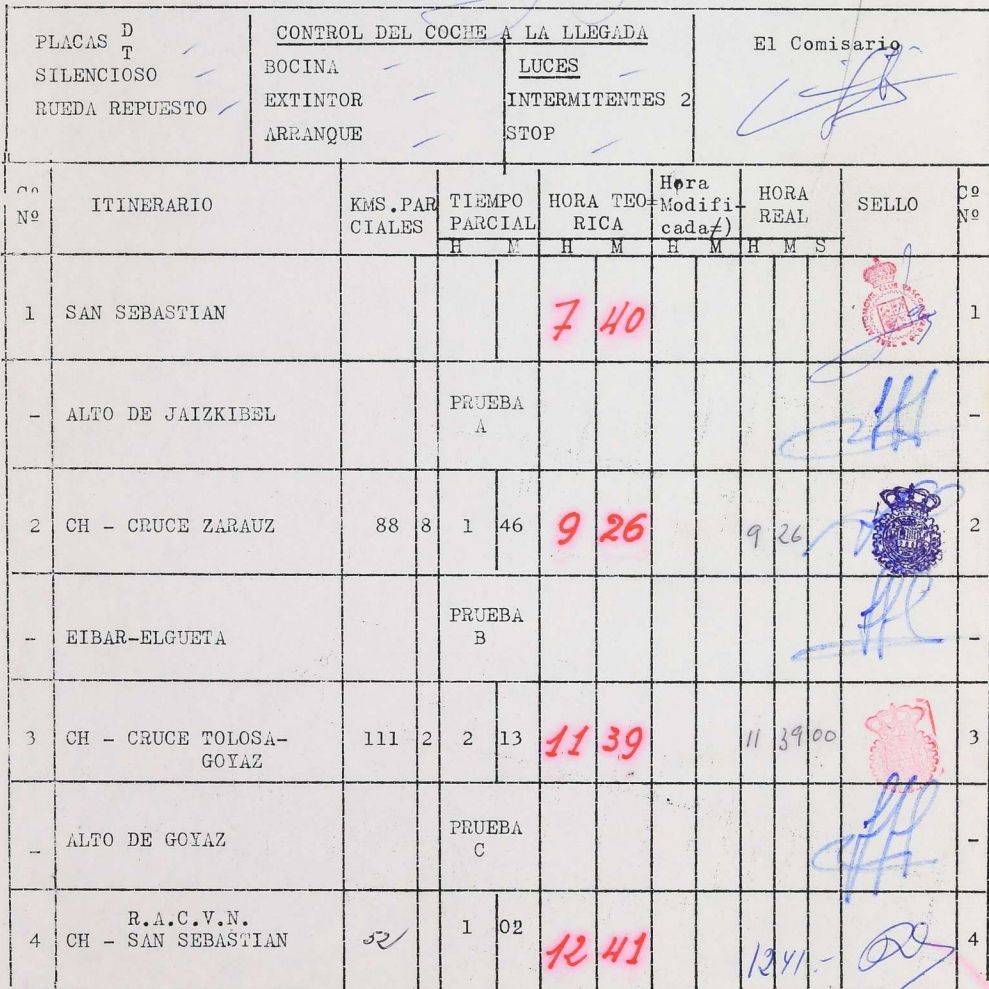 PLACAS D
T
SILENCIOSO
RUEDA REPUESTO
CONTROL DEL COCHE A LA LLEGADA
BOCINA
EXTINTOR
ARRANQUE
LUCES
INTERMITENTES 2
STOP
El Comisario
Cº Nº
ITINERARIO
KMS.PARCIALES
TIEMPO PARCIAL
H M
HORA TEO=RICA
H M
Hora Modifi-cada≠)
H M
HORA REAL
H M S
SELLO
Cº Nº
1 SAN SEBASTIAN 7 40 1
- ALTO DE JAIZKIBEL PRUEBA A -
2 CH - CRUCE ZARAUZ 88 8 1 46 9 26 9 26 2
- EIBAR-ELGUETA PRUEBA B -
3 CH - CRUCE TOLOSA-GOYAZ 111 2 2 13 11 39 11 39 00 3
- ALTO DE GOYAZ PRUEBA C -
4 R.A.C.V.N.
CH - SAN SEBASTIAN 52 1 02 12 41 12 41 - 4